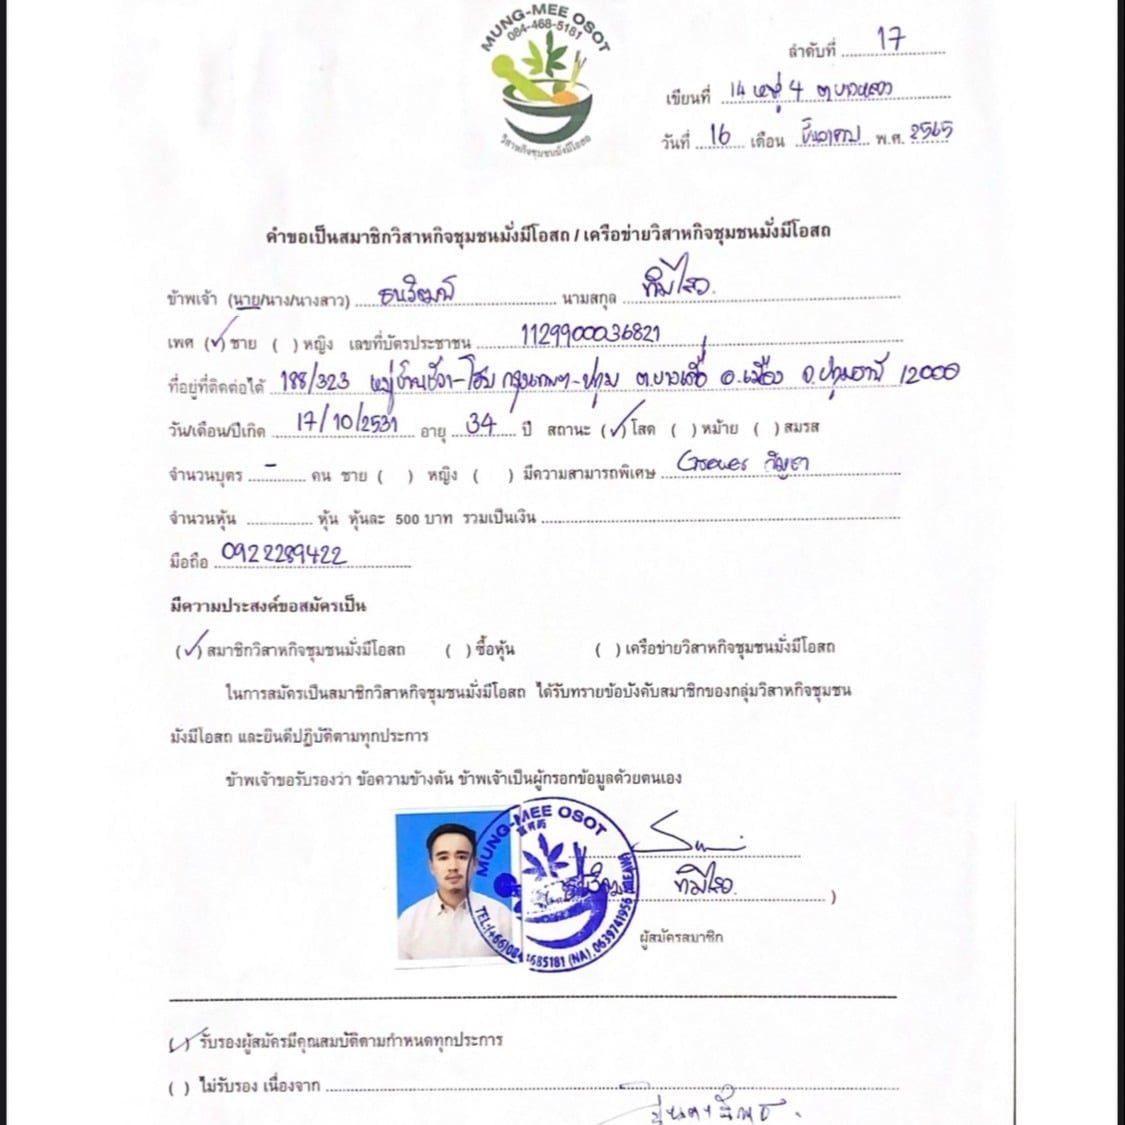 MUNG-MEE OSOT
084-468-5181
วิสาหกิจชุมชนมั่งมีโอสถ
ลำดับที่ 17
เขียนที่ 14 หมู่ 4 ต.บางหลวง
วันที่ 16 เดือน ธันวาคม พ.ศ. 2565
คำขอเป็นสมาชิกวิสาหกิจชุมชนมั่งมีโอสถ / เครือข่ายวิสาหกิจชุมชนมั่งมีโอสถ
ข้าพเจ้า (นาย/นาง/นางสาว) ธนวิฒน์ นามสกุล ทิมไสว.
เพศ (✓) ชาย ( ) หญิง เลขที่บัตรประชาชน 1129900036821
ที่อยู่ที่ติดต่อได้ 188/323 กรุงเทพฯ-ปทุม ต.บางเดื่อ อ.เมือง จ.ปทุมธานี 12000
วัน/เดือน/ปีเกิด 17/10/2531 อายุ 34 ปี สถานะ (✓) โสด ( ) หม้าย ( ) สมรส
จำนวนบุตร - คน ชาย ( ) หญิง ( ) มีความสามารถพิเศษ Grower กัญชา
จำนวนหุ้น หุ้น หุ้นละ 500 บาท รวมเป็นเงิน
มือถือ 0922289422
มีความประสงค์ขอสมัครเป็น
(✓) สมาชิกวิสาหกิจชุมชนมั่งมีโอสถ ( ) ซื้อหุ้น ( ) เครือข่ายวิสาหกิจชุมชนมั่งมีโอสถ
ในการสมัครเป็นสมาชิกวิสาหกิจชุมชนมั่งมีโอสถ ได้รับทราบข้อบังคับสมาชิกของกลุ่มวิสาหกิจชุมชน
มั่งมีโอสถ และยินดีปฏิบัติตามทุกประการ
ข้าพเจ้าขอรับรองว่า ข้อความข้างต้น ข้าพเจ้าเป็นผู้กรอกข้อมูลด้วยตนเอง
MUNG-MEE OSOT
TEL:(+66)084 4685181 (NA), 0639741956
ทิมไสว. )
ผู้สมัครสมาชิก
(✓) รับรองผู้สมัครมีคุณสมบัติตามกำหนดทุกประการ
( ) ไม่รับรอง เนื่องจาก